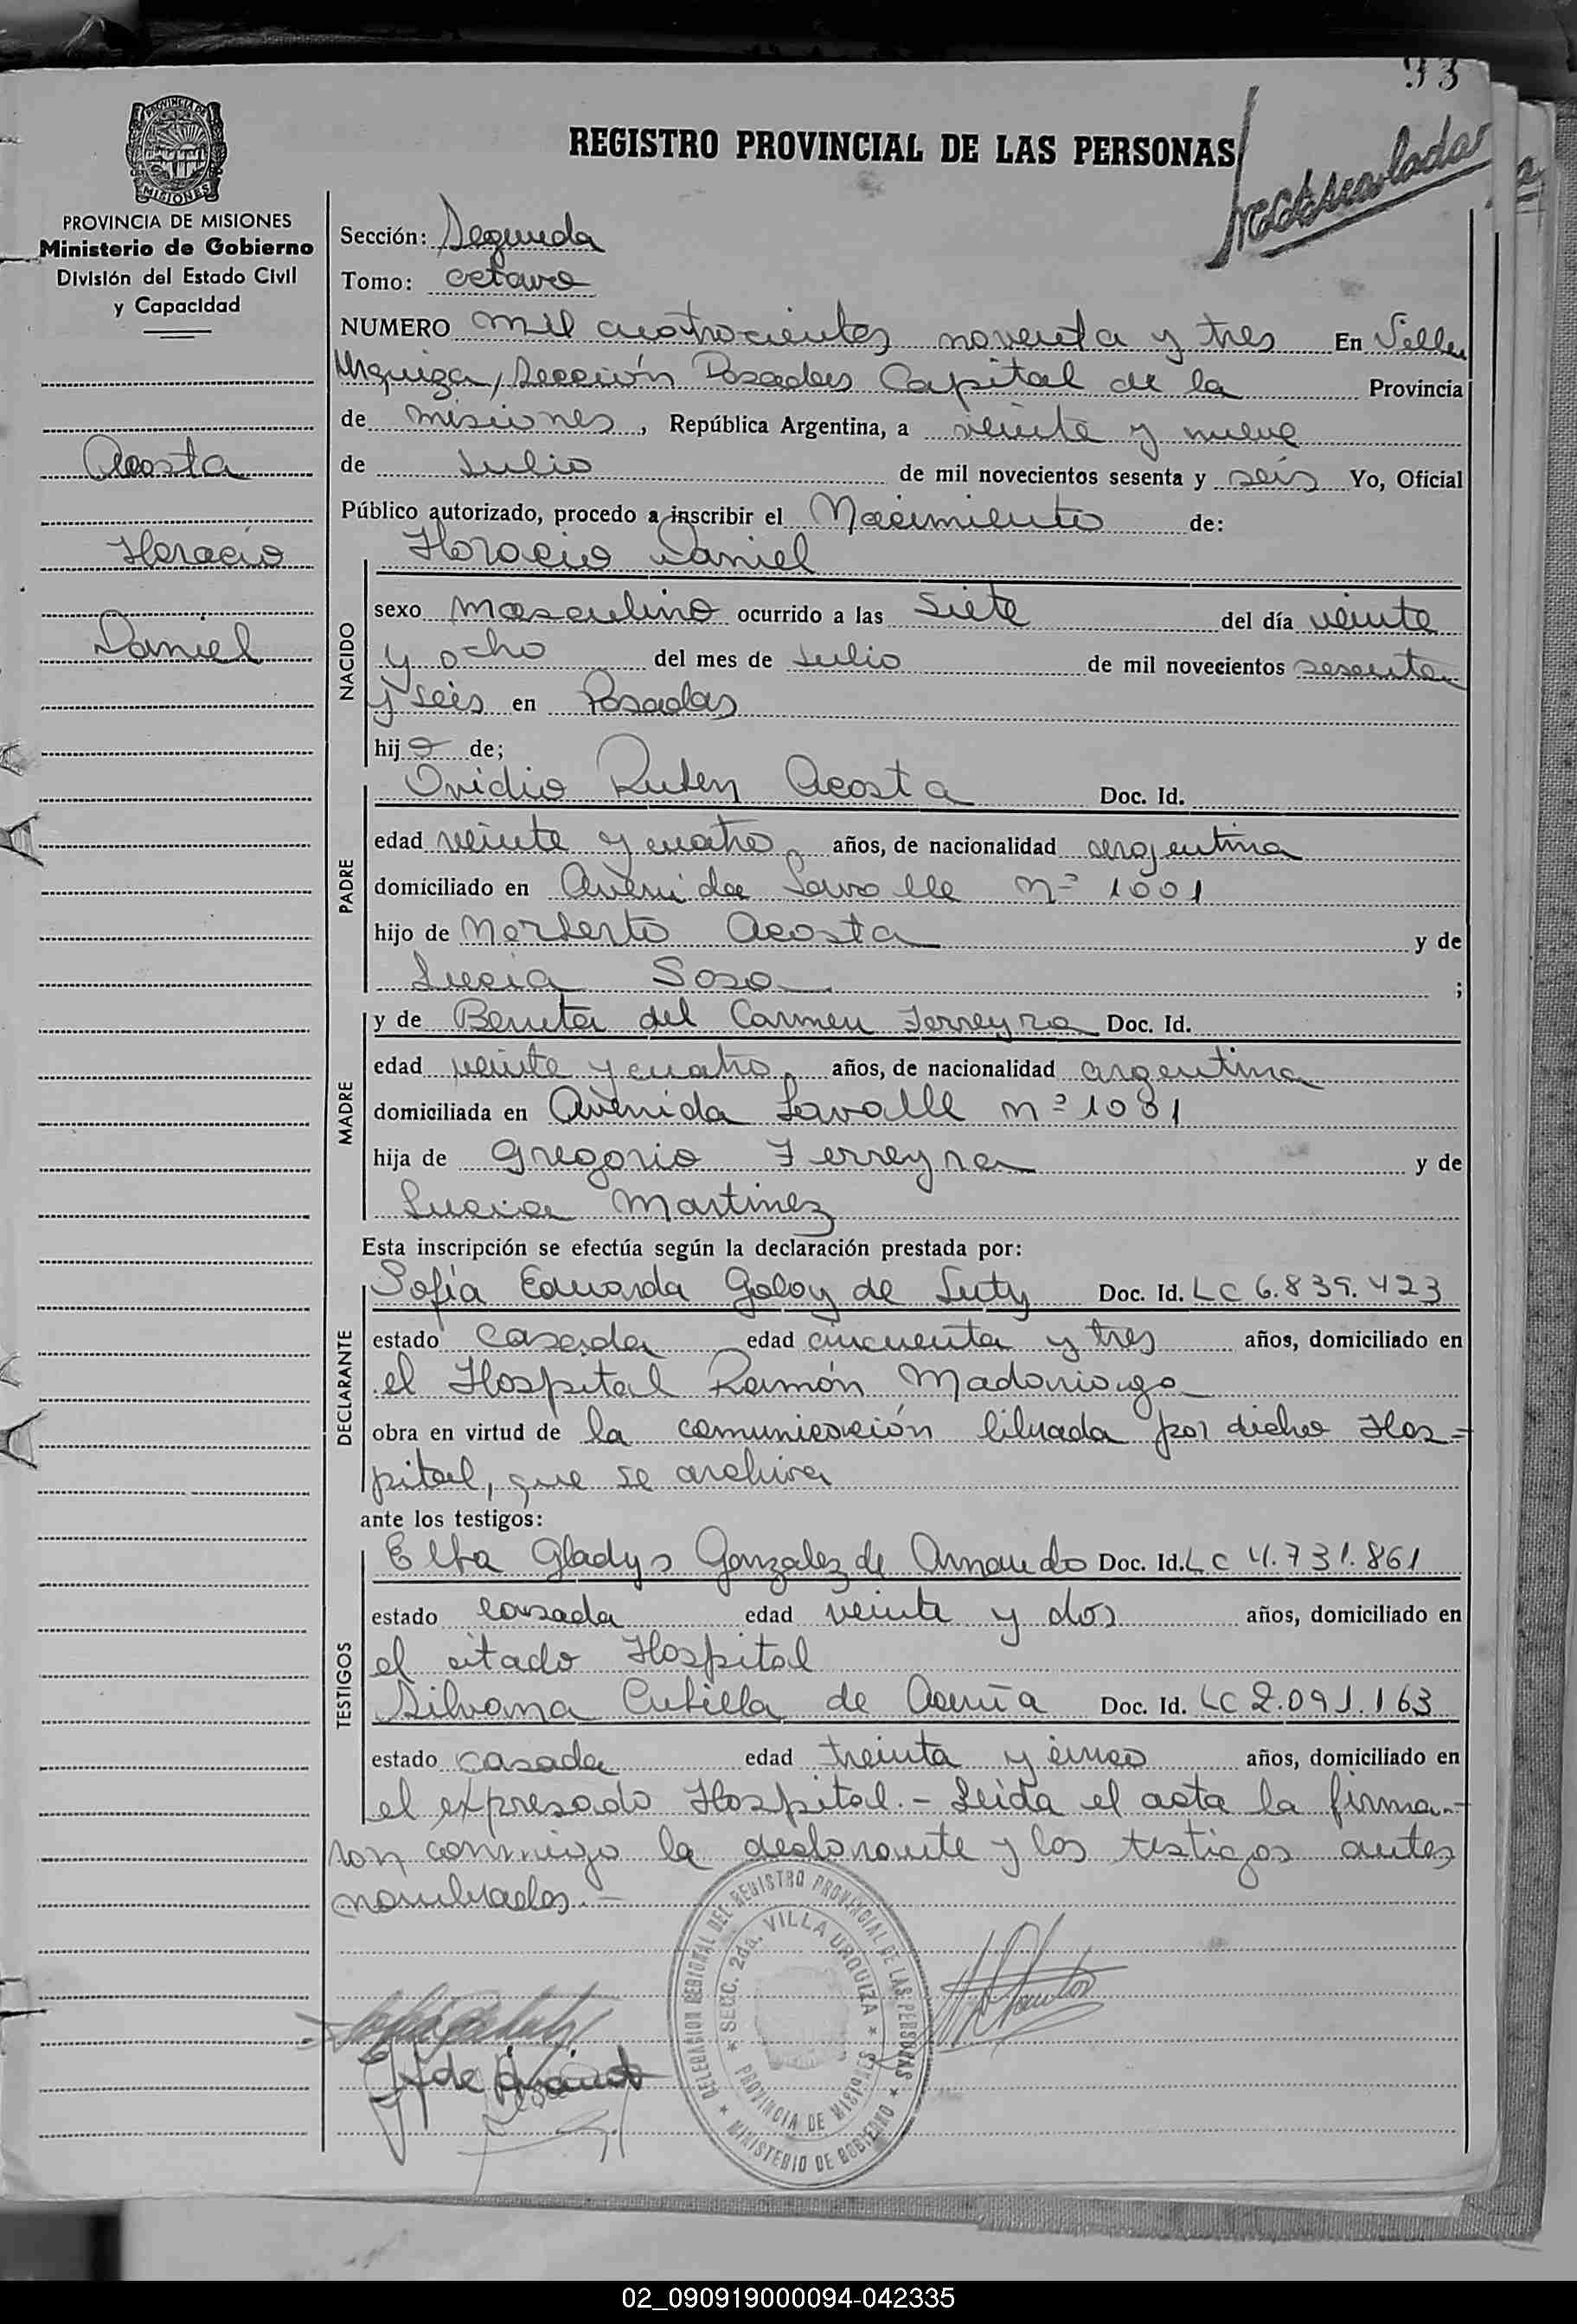 93
REGISTRO PROVINCIAL DE LAS PERSONAS
PROVINCIA DE MISIONES
Ministerio de Gobierno
División del Estado Civil
y Capacidad
Acosta
Horacio
Daniel
Sección: Segunda
Tomo: octavo
NUMERO mil cuatrocientos noventa y tres En Villa
Urquiza, Sección Posadas Capital de la Provincia
de misiones, República Argentina, a veinte y nueve
de Julio de mil novecientos sesenta y seis Yo, Oficial
Público autorizado, procedo a inscribir el Nacimiento de:
Horacio Daniel
NACIDO
sexo masculino ocurrido a las siete del día veinte
y ocho del mes de Julio de mil novecientos sesenta
y seis en Posadas
hijo de;
PADRE
Ovidio Ruben Acosta Doc. Id.
edad veinte y cuatro años, de nacionalidad argentina
domiciliado en Avenida Lavalle nº 1001
hijo de Norberto Acosta y de
Lucia Soso ;
MADRE
y de Benita del Carmen Ferreyra Doc. Id.
edad veinte y cuatro años, de nacionalidad argentina
domiciliada en Avenida Lavalle nº 1081
hija de Gregorio Ferreyra y de
Lucia Martinez
Esta inscripción se efectúa según la declaración prestada por:
DECLARANTE
Sofía Eduarda Galoy de Luty Doc. Id. LC 6.839.423
estado casada edad cincuenta y tres años, domiciliado en
el Hospital Ramón Madariaga
obra en virtud de la comunicación librada por dicho Hos=
pital, que se archiva
ante los testigos:
TESTIGOS
Elba Gladys Gonzalez de Arnaudo Doc. Id. LC 4.731.861
estado casada edad veinte y dos años, domiciliado en
el citado Hospital
Silvana Cubilla de Acuña Doc. Id. LC 2.091.163
estado casada edad treinta y cinco años, domiciliado en
el expresado Hospital.- Leida el acta la firma-
ron conmigo la declarante y los testigos antes
nombrados.-
DELEGACION REGIONAL DEL REGISTRO PROVINCIAL DE LAS PERSONAS
SECC. 2da. VILLA URQUIZA
PROVINCIA DE MISIONES
MINISTERIO DE GOBIERNO
02_090919000094-042335